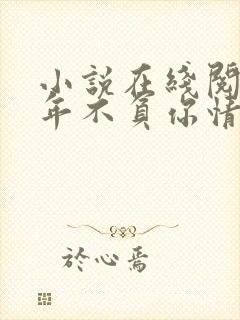 小說在綫閱
年不負你情
於心焉